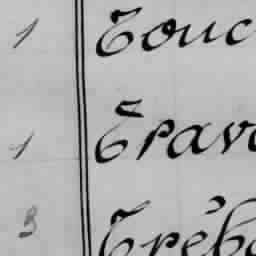 1 Touc
1 Trav
3 Tréb